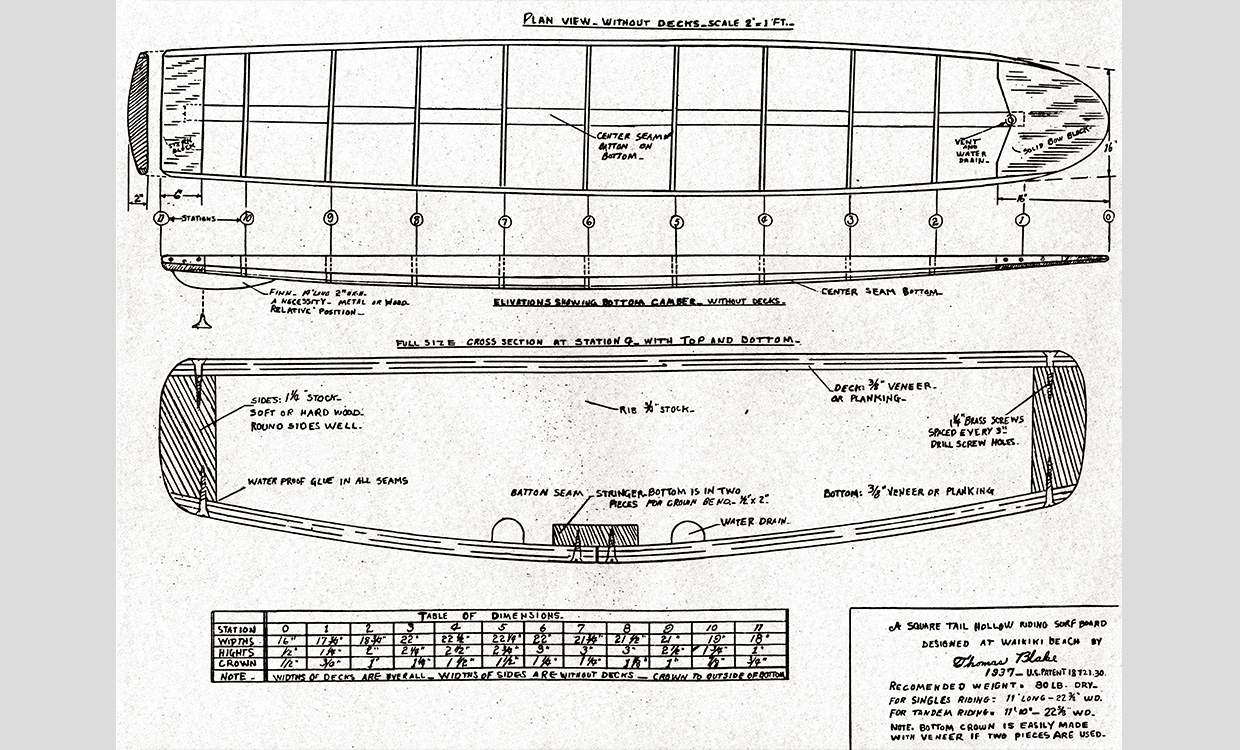 PLAN VIEW_ WITHOUT DECKS_SCALE 2"=1 FT._
STERN BLOCK
CENTER SEAM
BATTON ON
BOTTOM_
VENT
AND
WATER
DRAIN_
SOLID BOW BLOCK_
16"
2"
6"
16"
11 STATIONS 10 9 8 7 6 5 4 3 2 1 0
FINN_ LONG 2"
A NECESSITY_ METAL OR WOOD.
RELATIVE POSITION_
ELIVATIONS SHOWING BOTTOM CAMBER_ WITHOUT DECKS_
CENTER SEAM BOTTOM_
FULL SIZE CROSS SECTION AT STATION 4_ WITH TOP AND BOTTOM_
SIDES: 1¼" STOCK_
SOFT OR HARD WOOD_
ROUND SIDES WELL_
RIB ¾" STOCK_
DECK: ⅜" VENEER_
OR PLANKING_
1¼" BRASS SCREWS
SPACED EVERY 3"
DRILL SCREW HOLES.
WATER PROOF GLUE IN ALL SEAMS
BATTON SEAM_ STRINGER_BOTTOM IS IN TWO
PIECES FOR CROWN BEND_ ½"x 2"
WATER DRAIN_
BOTTOM: ⅜" VENEER OR PLANKING
TABLE OF DIMENSIONS.
STATION 0 1 2 3 4 5 6 7 8 9 10 11
WIDTHS 16" 17¾" 18¾" 22" 22½" 22¼" 22" 21¾" 21½" 21" 19" 18"
HIGHTS ½" 1¼" 2" 2½" 2¾" 3" 3" 3" 1"
CROWN 1/2" 3/8" 1" 1¼" 1½" 1½" 1¼" 1¼" 1" ¾"
NOTE_ WIDTHS OF DECKS ARE OVERALL_ WIDTHS OF SIDES ARE WITHOUT DECKS_ CROWN TO OUTSIDE OF BOTTOM
A SQUARE TAIL HOLLOW RIDING SURF BOARD
DESIGNED AT WAIKIKI BEACH BY
Thomas Blake
1937_ U.S. PATENT 18 721.30.
RECOMENDED WEIGHT= 80 LB. DRY_
FOR SINGLES RIDING= 11' LONG-22⅜" WD.
FOR TANDEM RIDING= 11'10"- 22⅜" WD_
NOTE. BOTTOM CROWN IS EASILY MADE
WITH VENEER IF TWO PIECES ARE USED_